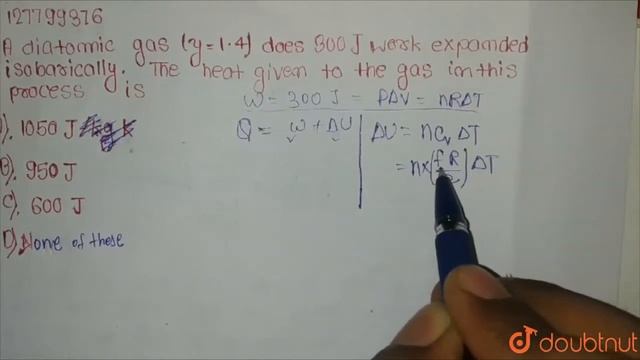 127799376
A diatomic gas (γ=1.4) does 300 J work expanded
isobarically. The heat given to the gas in this
process is
A). 1050 J
B). 950 J
C). 600 J
D). None of these
W = 300 J = PΔV = nRΔT
Q = W + ΔU
ΔU = nCvΔT
= n×(fR/2)ΔT
doubtnut